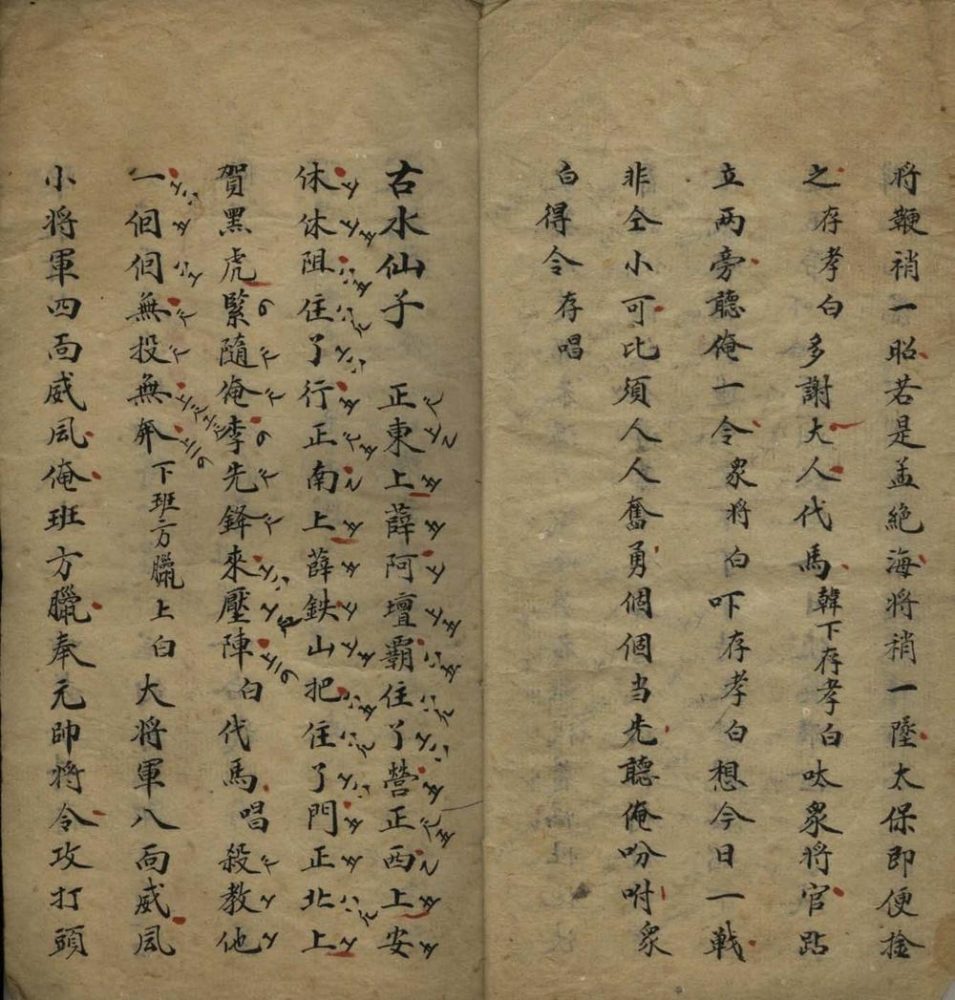 將鞭稍一昭若是孟絶海將稍一墜太保即便捡
之存孝白多謝大人代馬韓下存孝白呔衆將官跕
立兩旁聽俺一令衆將白吓存孝白想今日一戦
非仝小可比須人人奮勇個個当先聽俺吩咐衆
白得令存唱
古水仙子正東上薛阿壇霸住了營正西上安
休休阻住了行正南上薛鉄山把住了門正北上
賀黑虎緊隨俺李先鋒來壓陣白代馬唱殺教他
一個個無投無奔下班方臘上白大將軍八面威風
小將軍四面威風俺班方臘奉元帥將令攻打頭